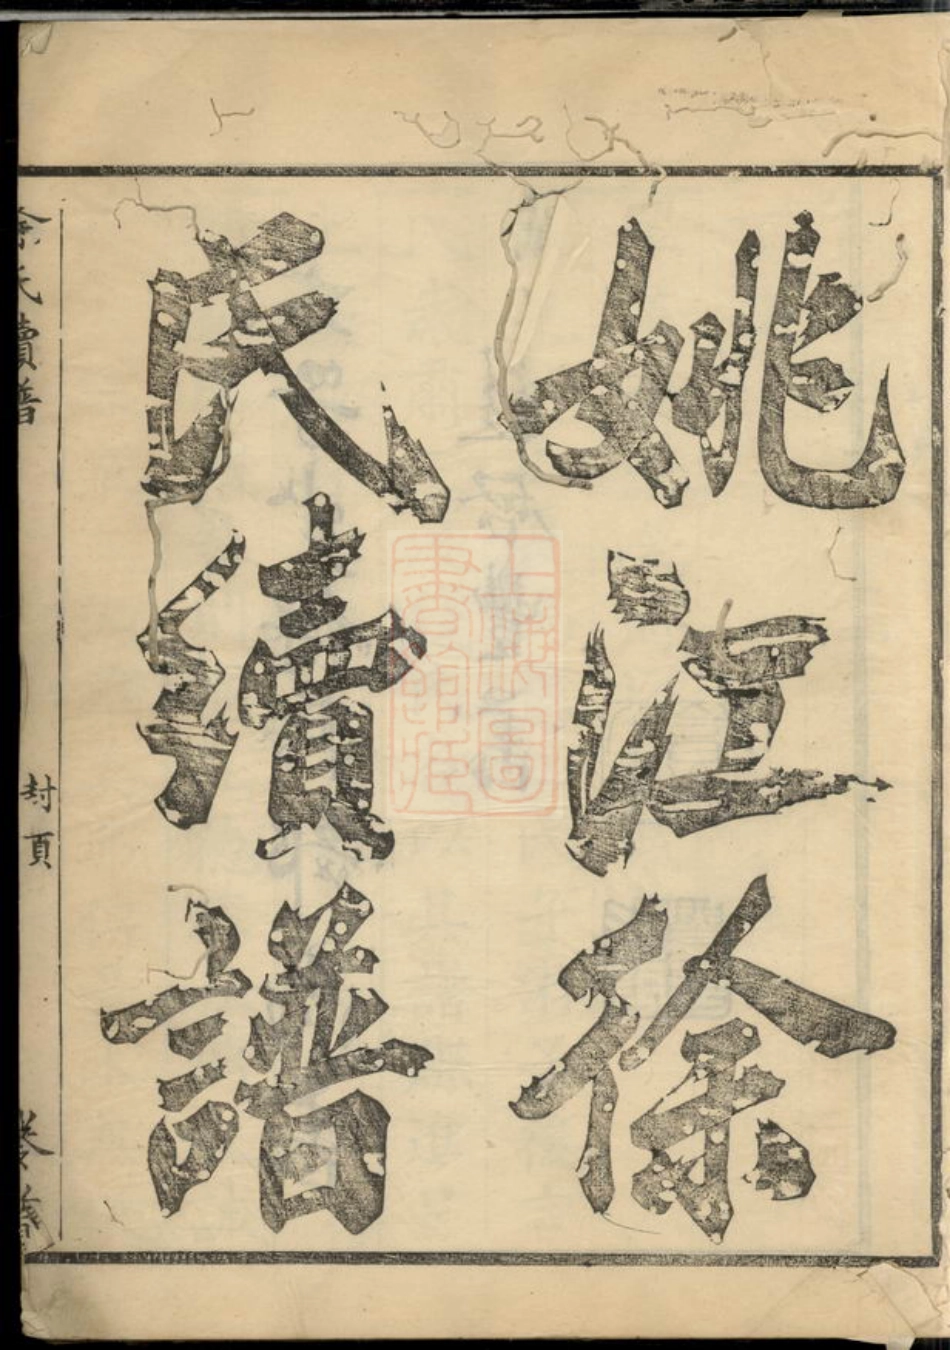 姚江徐
氏續譜
徐氏續譜
封頁
上海圖書館藏